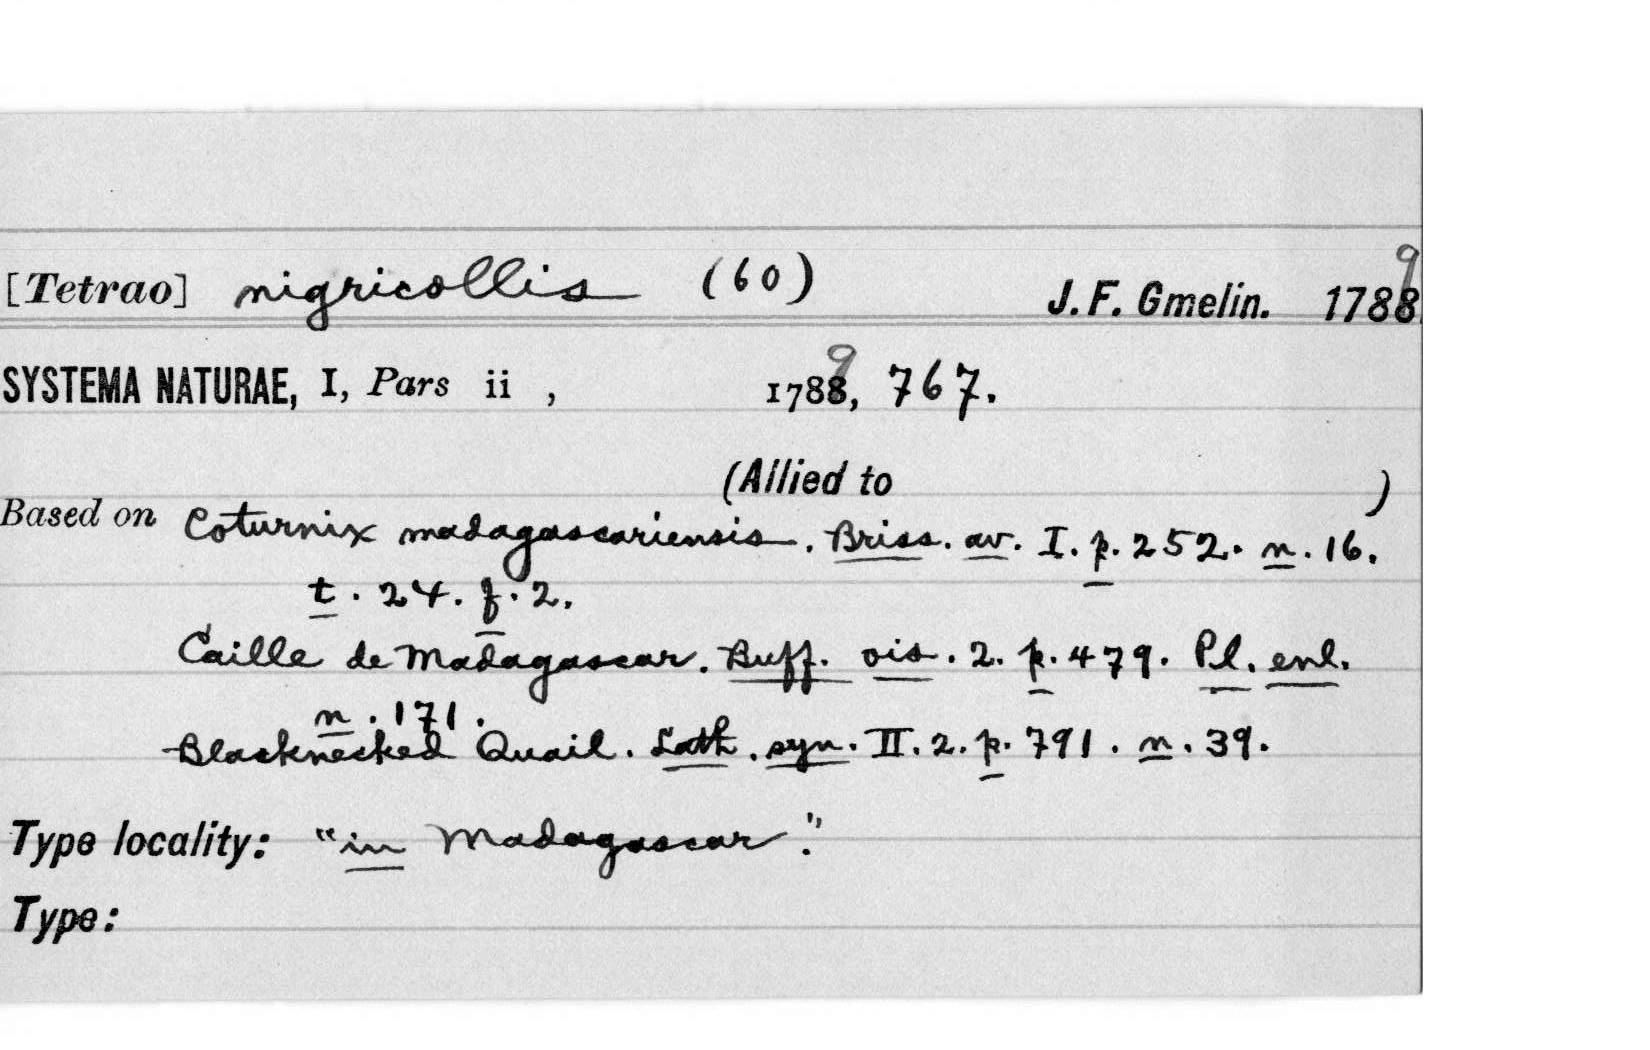 [Tetrao] nigricollis (60) J. F. Gmelin. 1789
SYSTEMA NATURAE, I, Pars ii , 1789, 767.
(Allied to )
Based on Coturnix madagascariensis. Briss. av. I. p. 252. n. 16.
t. 24. f. 2.
Caille de Madagascar. Buff. ois. 2. p. 479. Pl. enl.
n. 171.
Blacknecked Quail. Lath. syn. II. 2. p. 791. n. 39.
Type locality: "in Madagascar."
Type: